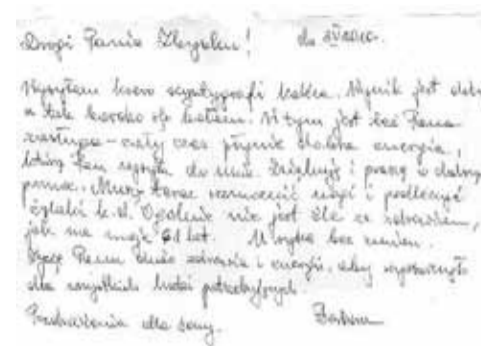 Drogi Panie Zbyszku!
Wysyłam ksero scyntygrafii kośćca. Wynik jest
a tak bardzo się bałam. W tym jest też Pana
zasługa - cały czas płynie dobra energia,
którą Pan wysyła do mnie. Dziękuję i proszę o dalszą
pomoc. Muszę teraz wzmocnić nogi i podleczyć
żylaki k. d. Ogólnie nie jest źle ze zdrowiem,
jak na moje 61 lat. U syna bez zmian.
Życzę Panu dużo zdrowia i energii, aby wystarczyło
dla wszystkich ludzi potrzebujących.
Pozdrowienia dla żony.